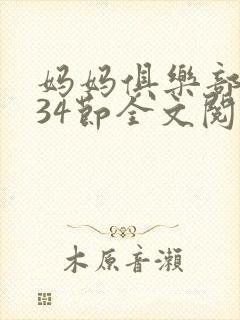 妈妈俱樂部
34節全文閱
木原音瀨